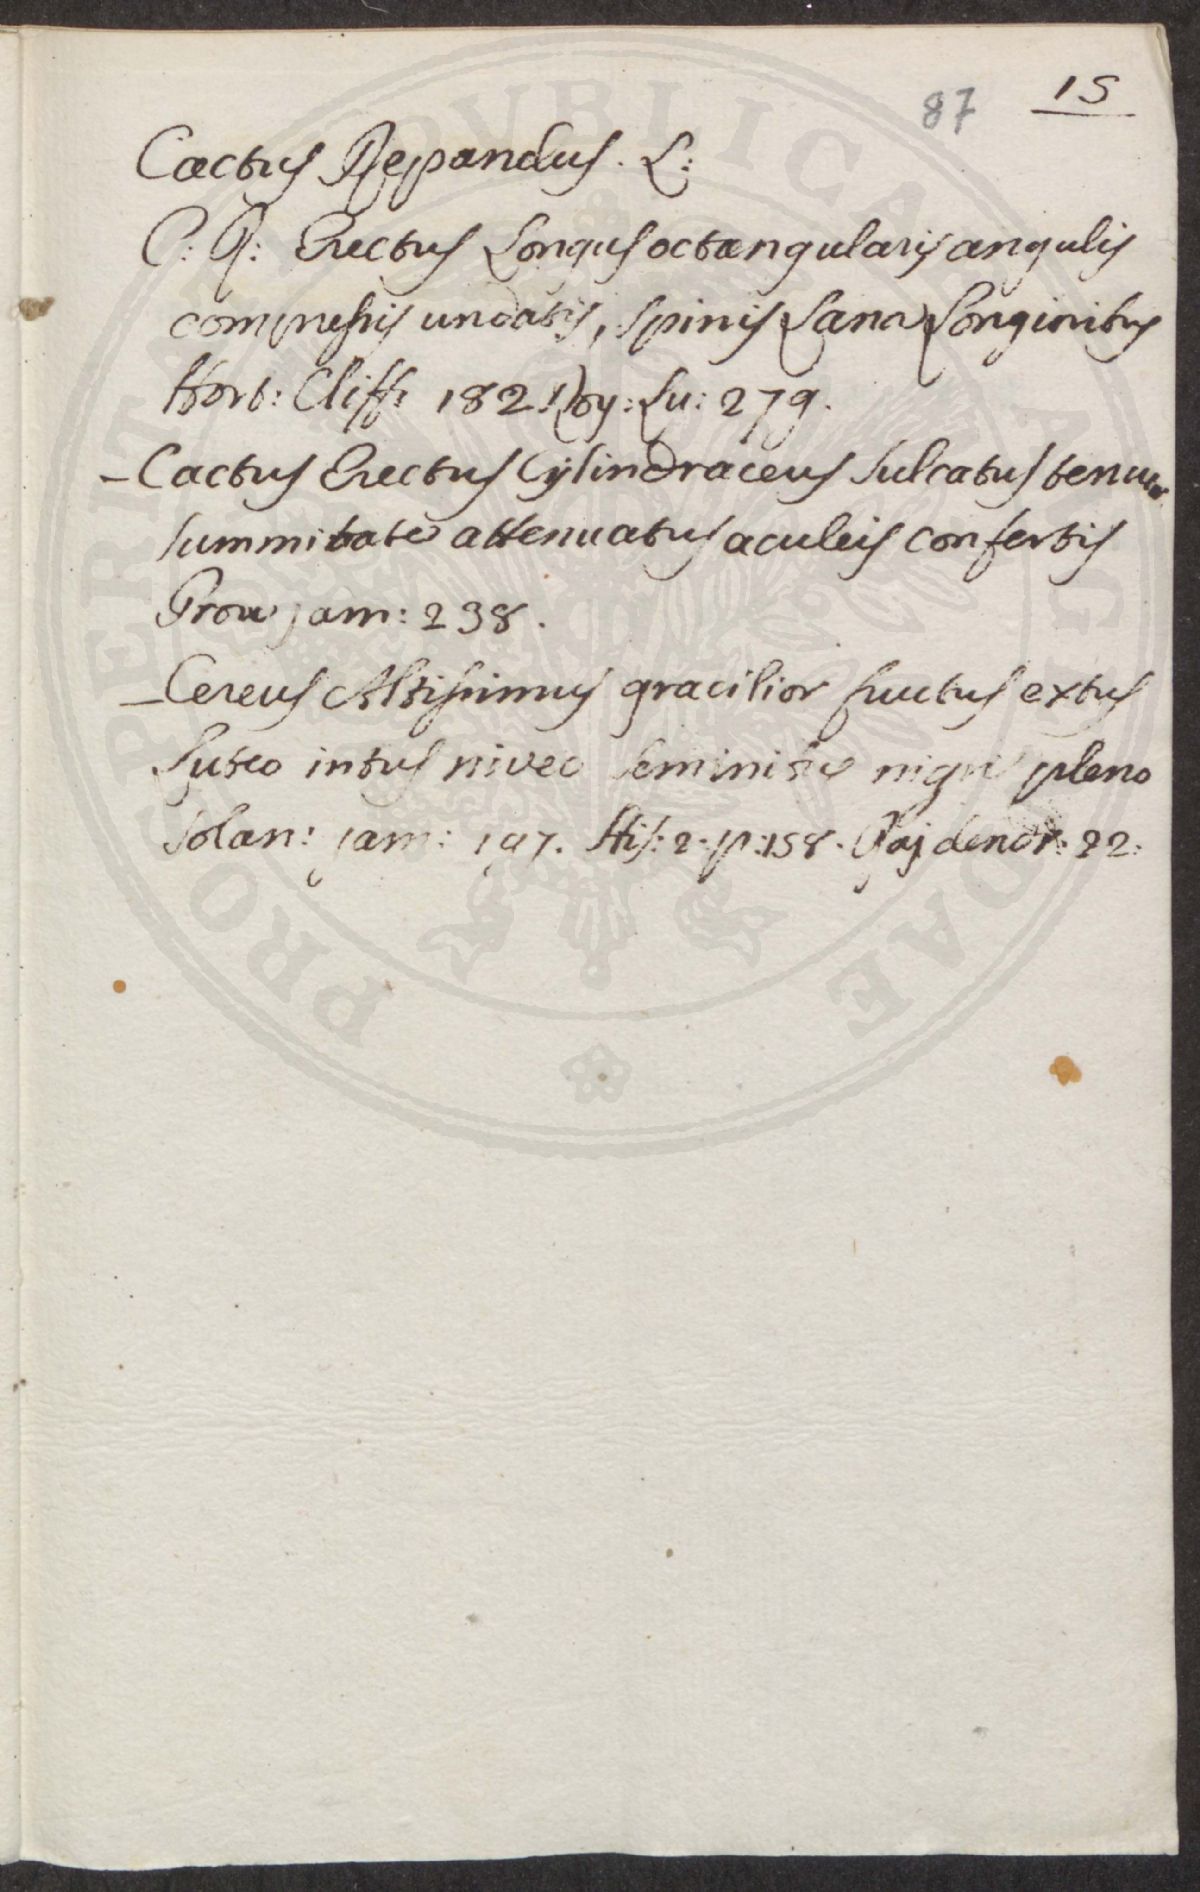 87 15
Cactus Repandus. L:
C: R: Erectus Longus octangularis angulis
compressis undatis, spinis Lana Longioribus
Hort: Cliff: 182. Roy: Lu: 279.
- Cactus Erectus Cylindraceus sulcatus tenuior
summitate attenuatus aculeis confertis
Brow jam: 238.
- Cereus Altissimus gracilior fructus extus
Luteo intus niveo seminibus nigris pleno
Solan: jam: 197. His: 2. p: 158. Raj dendr: 22:
PROSPERITATI PVBLICAE AVGENDAE